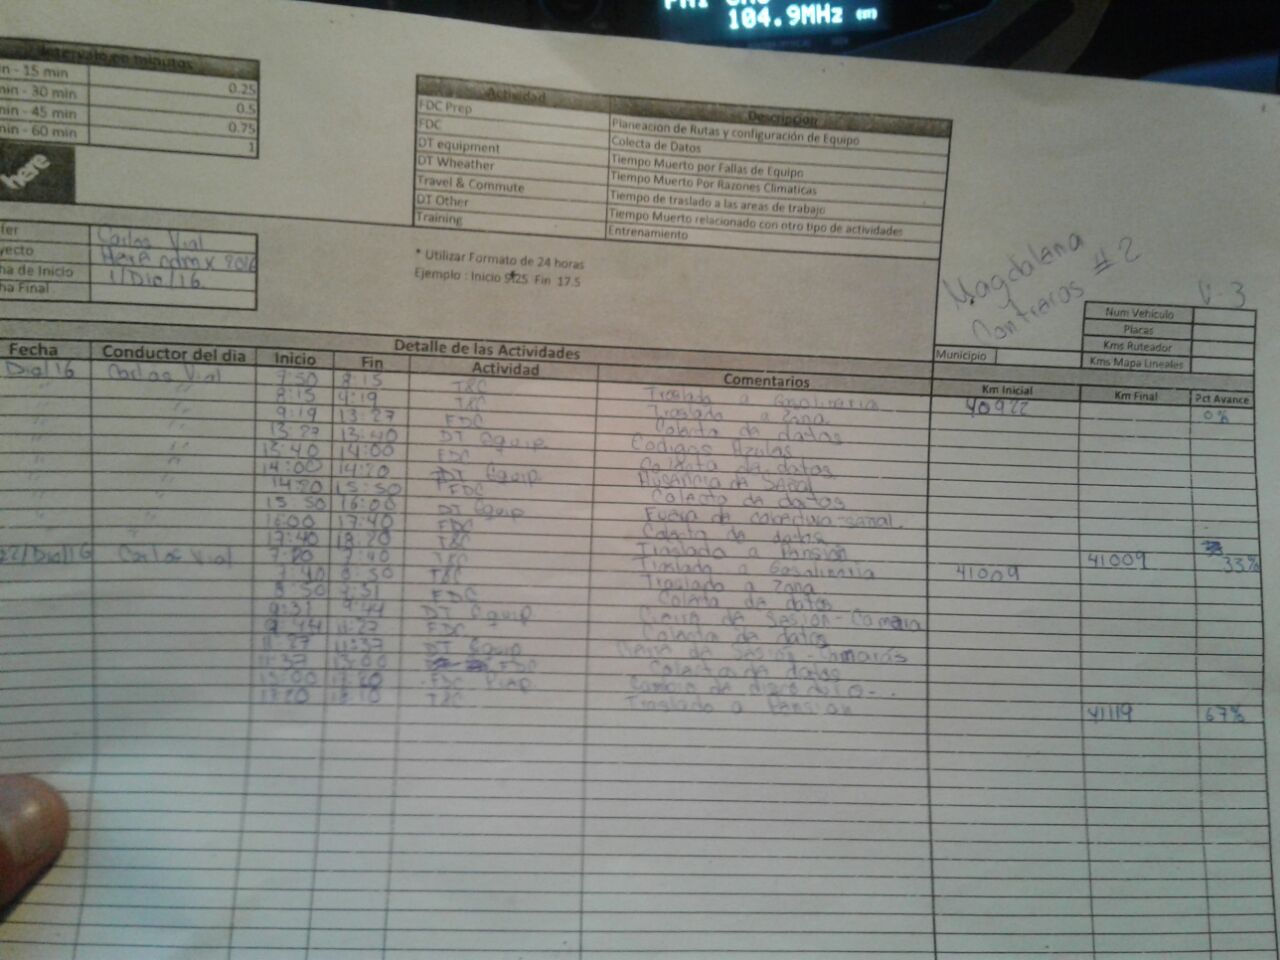 104.9MHz
Intervalo en minutos
n - 15 min 0.25
min - 30 min 0.5
min - 45 min 0.75
min - 60 min 1
here
Actividad Descripción
FDC Prep Planeacion de Rutas y configuración de Equipo
FDC Colecta de Datos
DT equipment Tiempo Muerto por Fallas de Equipo
DT Wheather Tiempo Muerto Por Razones Climaticas
Travel & Commute Tiempo de traslado a las areas de trabajo
DT Other Tiempo Muerto relacionado con otro tipo de actividades
Training Entrenamiento
Carlos Vial
yecto
ha de Inicio 1/Dic/16
ha Final
* Utilizar Formato de 24 horas
Ejemplo : Inicio 9.25 Fin 17.5
Magdalena
Contreras #2
V-3
Num Vehiculo
Placas
Kms Ruteador
Municipio Kms Mapa Lineales
Detalle de las Actividades
Fecha Conductor del dia Inicio Fin Actividad Comentarios Km Inicial Km Final Pct Avance
Dic/16 Carlos Vial 8:15 T&C Traslado a Gasolineria 40922 0%
" 8:15 9:19 T&C Traslado a Zona
" 9:19 13:27 FDC Colecta de datos
" 13:27 13:40 DT Equip Codigos Azules
" 13:40 14:00 FDC Colecta de datos
" 14:00 14:20 DT Equip Ausencia de Señal
" 14:20 15:50 FDC Colecta de datos
" 15:50 16:00 DT Equip Fuera de cobertura-señal
" 16:00 17:40 FDC Colecta de datos
17:40 T&C Traslado a Pensión 41009 33%
/Dic/16 Carlos Vial 7:20 7:40 T&C Traslado a Gasolineria 41009
7:40 8:50 T&C Traslado a Zona
8:50 FDC Colecta de datos
9:31 9:44 DT Equip Cierre de Sesión-Camara
9:44 11:27 FDC Colecta de datos
11:27 11:37 DT Equip Cierre de Sesión-Camaras
11:37 FDC Colecta de datos
FDC Prep Cambio de disco duro
T&C Traslado a Pensión 41119 67%